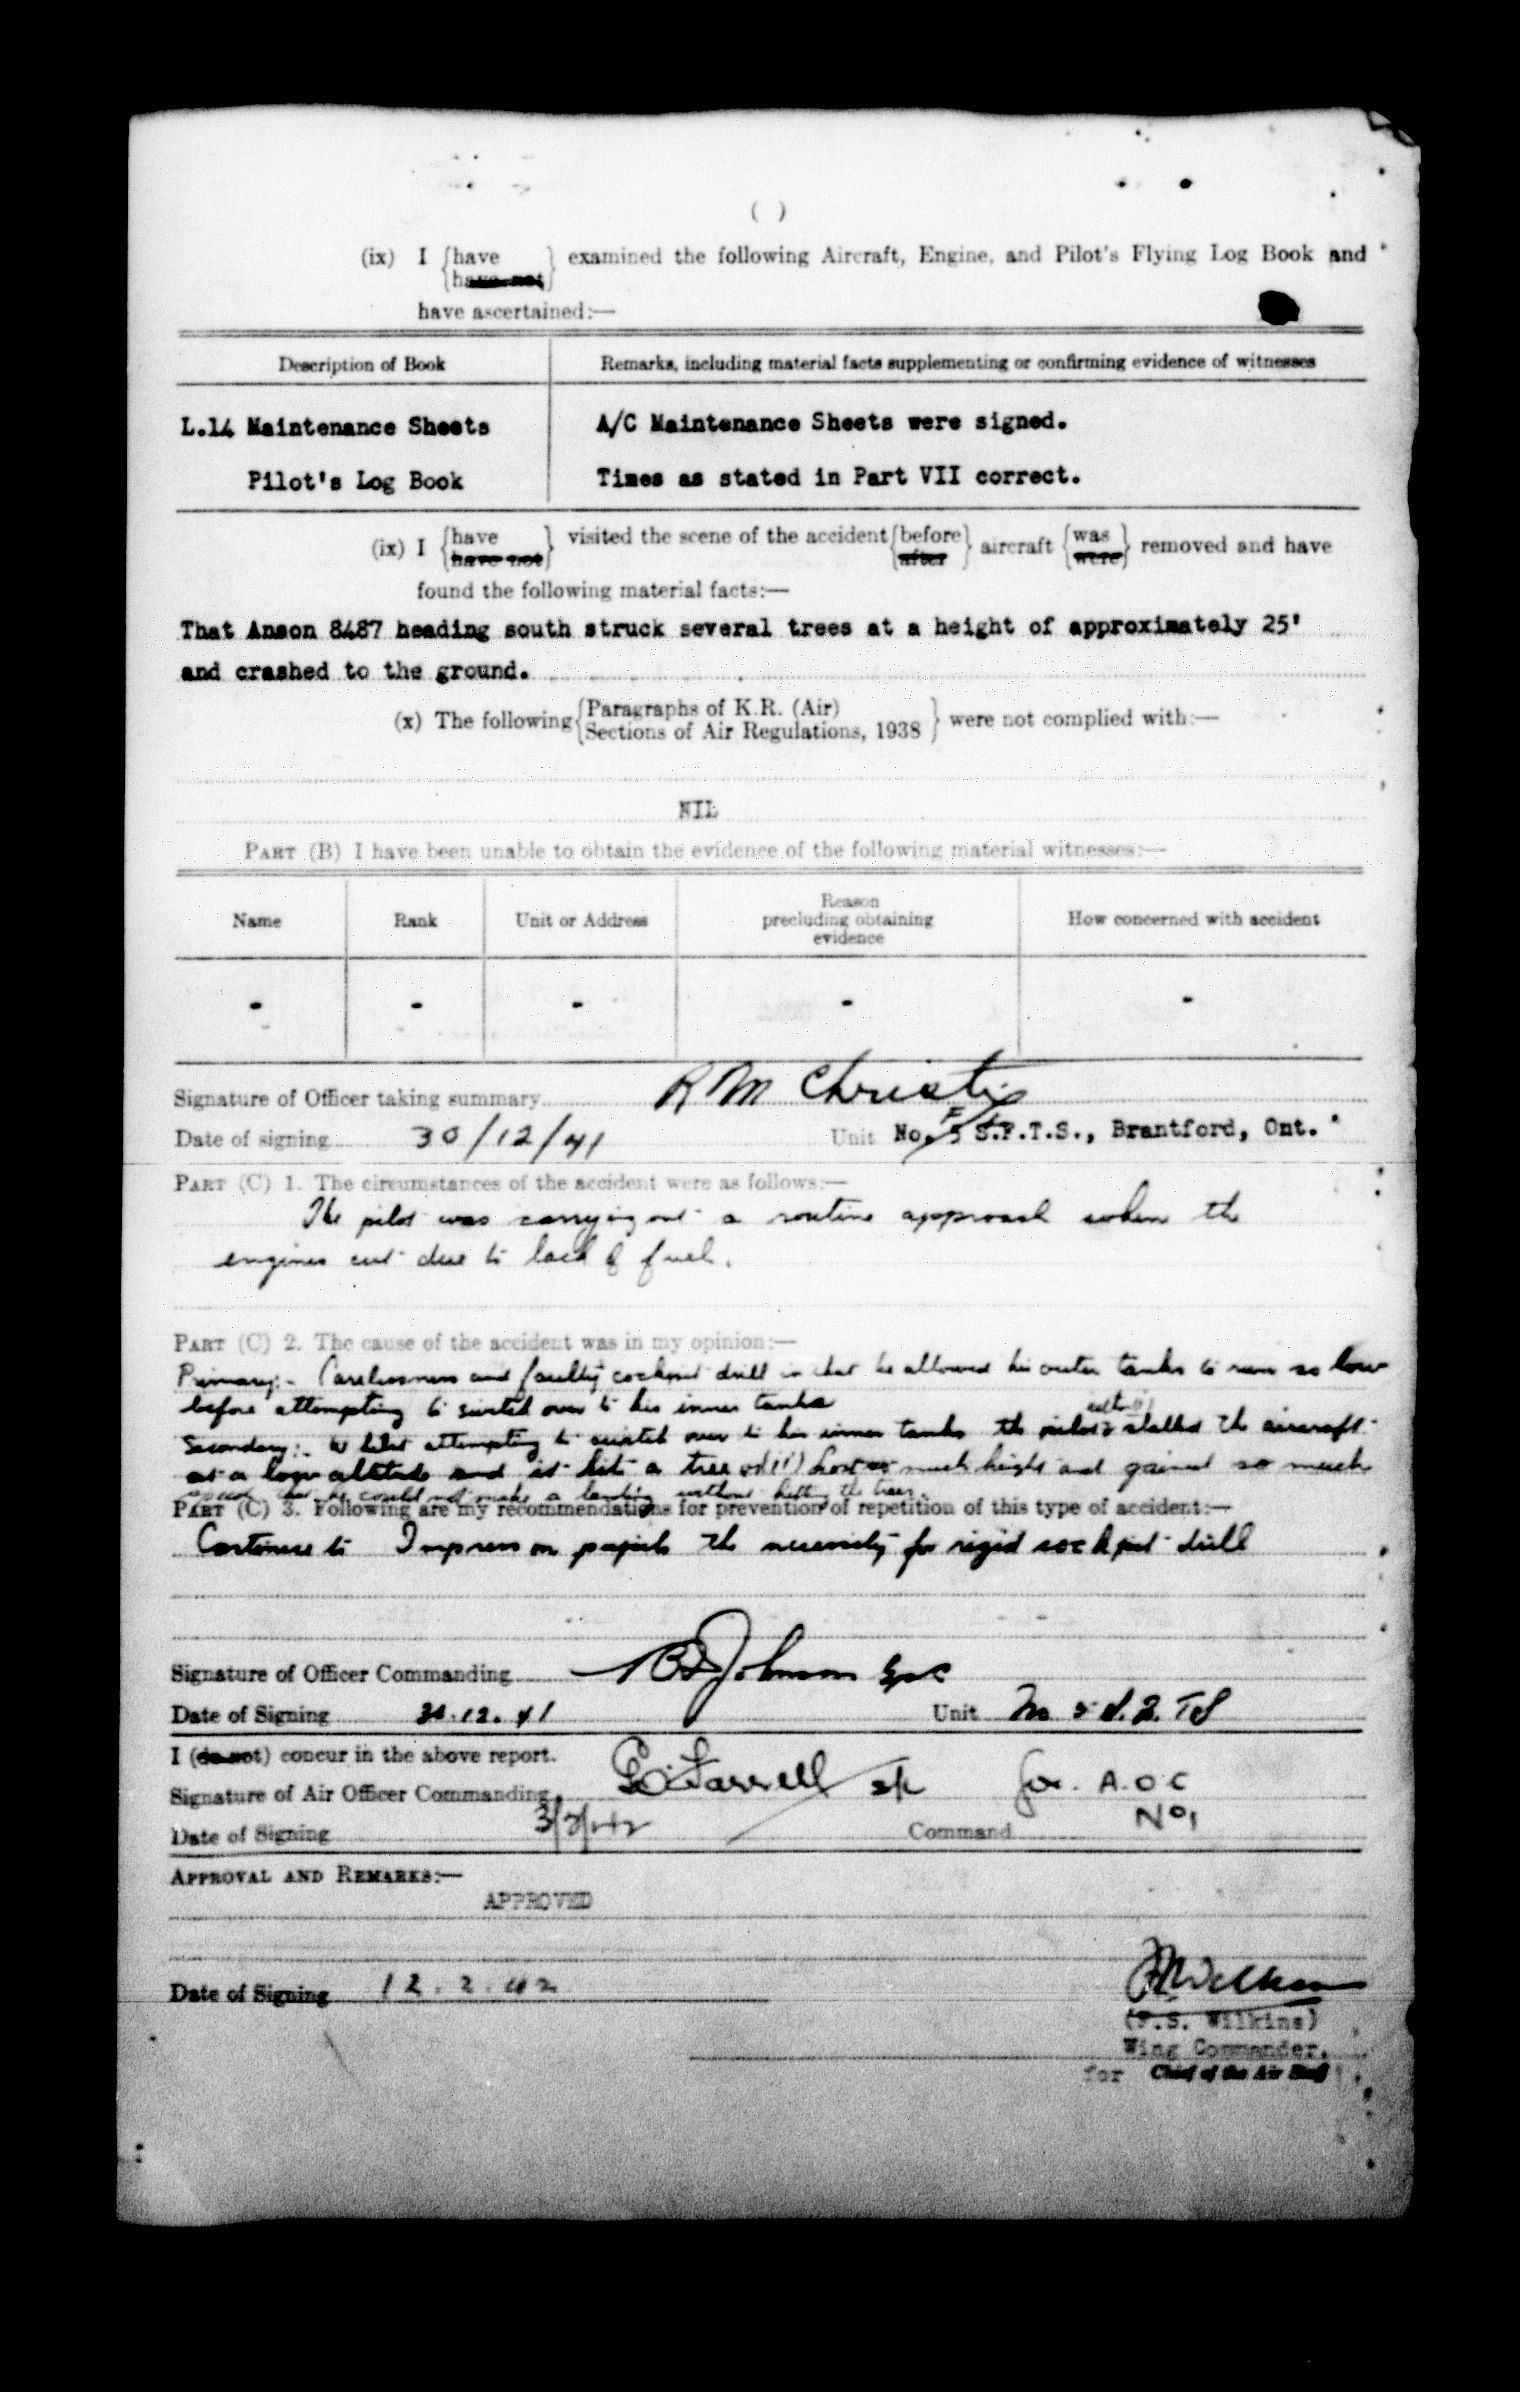 ( )
(ix) I {have } examined the following Aircraft, Engine, and Pilot's Flying Log Book and
{have not}
have ascertained:—
Description of Book Remarks, including material facts supplementing or confirming evidence of witnesses
L.14 Maintenance Sheets A/C Maintenance Sheets were signed.
Pilot's Log Book Times as stated in Part VII correct.
(ix) I {have / have not} visited the scene of the accident {before / after} aircraft {was / were} removed and have
found the following material facts:—
That Anson 8487 heading south struck several trees at a height of approximately 25'
and crashed to the ground.
(x) The following {Paragraphs of K.R. (Air) / Sections of Air Regulations, 1938} were not complied with:—
NIL
PART (B) I have been unable to obtain the evidence of the following material witnesses:—
Name Rank Unit or Address Reason precluding obtaining evidence How concerned with accident
- - - - -
Signature of Officer taking summary R M Christie F/L
Date of signing 30/12/41 Unit No. 5 S.F.T.S., Brantford, Ont.
PART (C) 1. The circumstances of the accident were as follows:—
The pilot was carrying out a routine approach when the
engines cut due to lack of fuel.
PART (C) 2. The cause of the accident was in my opinion:—
Primary:- Carelessness and faulty cockpit drill in that he allowed his outer tanks to run so low
before attempting to switch over to his inner tanks
either (i)
Secondary:- Whilst attempting to switch over to his inner tanks the pilot stalled the aircraft
at a low altitude and it hit a tree or (ii) Lost so much height and gained so much
speed that he could not make a landing without hitting the trees.
PART (C) 3. Following are my recommendations for prevention of repetition of this type of accident:—
Continue to Impress on pupils the necessity for rigid cockpit drill
Signature of Officer Commanding Johnson G/C
Date of Signing 31.12.41 Unit No 5 S.F.TS
I (do not) concur in the above report.
Signature of Air Officer Commanding Farrell S/L for A.O.C
Date of Signing 3/2/42 Command No 1
APPROVAL AND REMARKS:—
APPROVED
Date of Signing 12.2.42
(F.S. Wilkins)
Wing Commander.
for Chief of the Air Staff